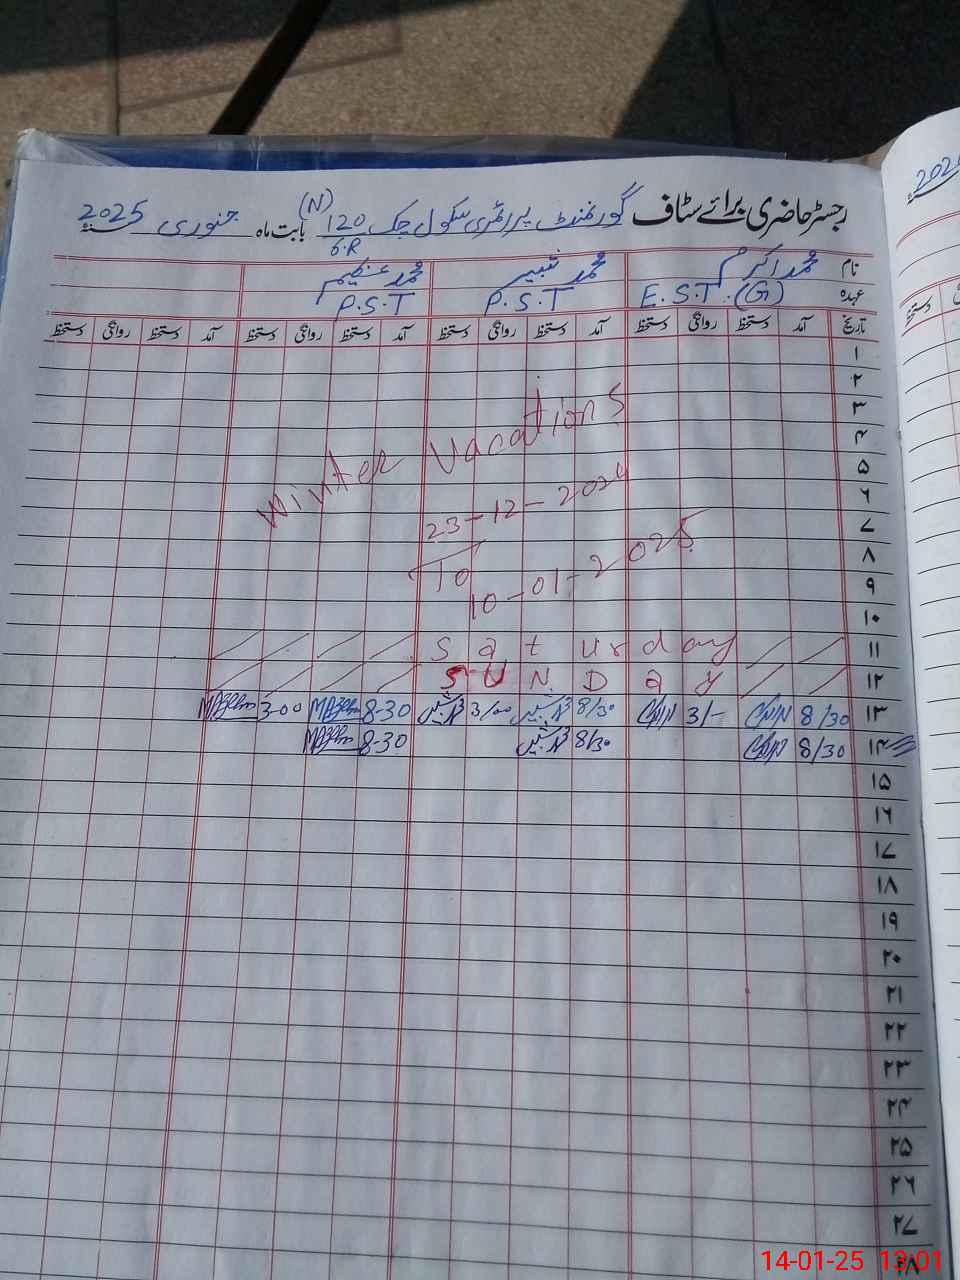 رجسٹر حاضری برائے سٹاف گورنمنٹ پرائمری سکول چک 120/6.R (N) بابت ماہ جنوری 2025
نام محمد اکرم محمد شبیر محمد عظیم
عہدہ E.S.T.(G) P.S.T P.S.T
تاریخ آمد دستخط روانگی دستخط آمد روانگی دستخط آمد دستخط روانگی دستخط آمد دستخط روانگی دستخط
۱
۲
۳
۴
Winter Vacations
۵
۶
23-12-2024
۷
۸
To
۹
10-01-2025
۱۰
۱۱ Saturday
۱۲ SUNDay
۱۳ 8/30 3/- 8/30 3/00 8-30 3-00
۱۴ 8/30 8/30 8-30
۱۵
۱۶
۱۷
۱۸
۱۹
۲۰
۲۱
۲۲
۲۳
۲۴
۲۵
۲۶
۲۷
۲۸
دستخط
14-01-25 13:01